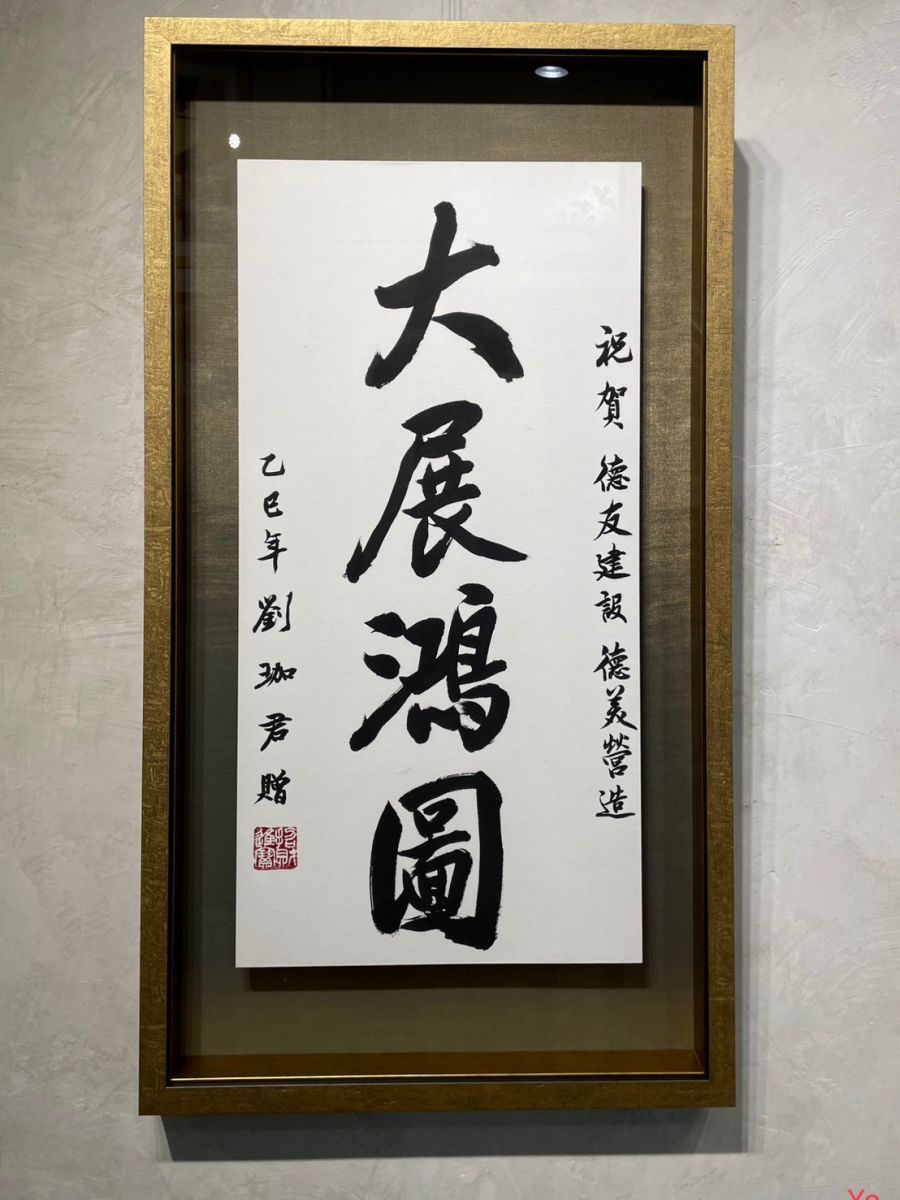 祝賀 德友建設 德美營造
大展鴻圖
乙巳年 劉珈君贈
Yo